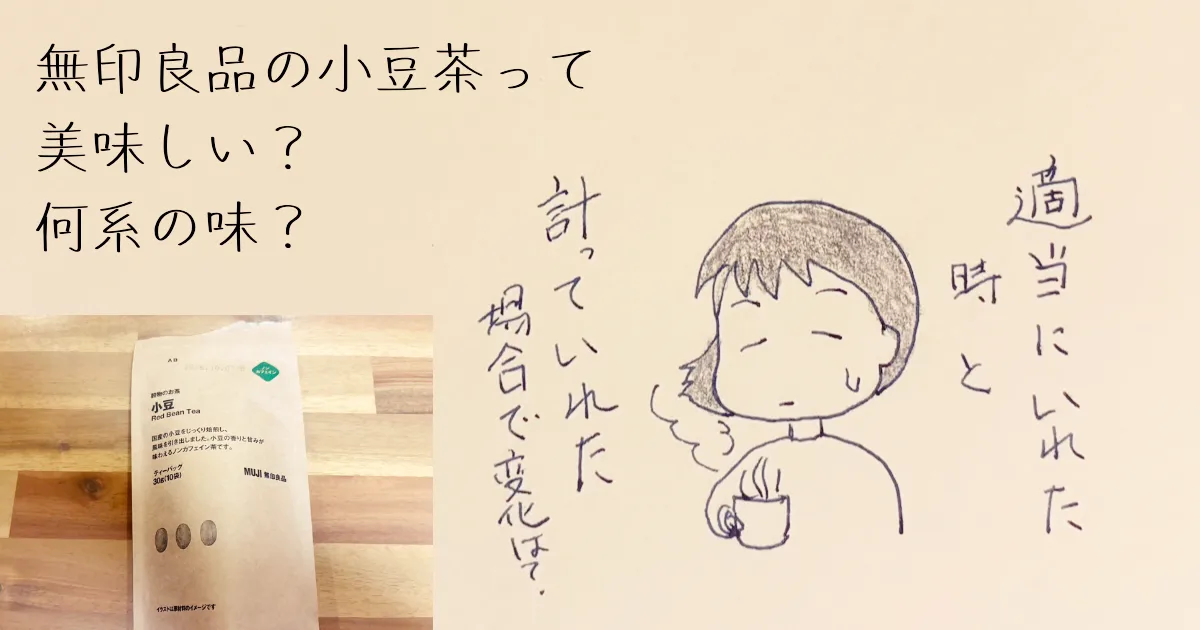 無印良品の小豆茶って
美味しい？
何系の味？
適当にいれた
時と
計っていれた
場合で変化はて.
穀物のお茶
小豆
Red Bean Tea
国産の小豆をじっくり焙煎し、
風味を引き出しました。小豆の香りと甘みが
味わえるノンカフェイン茶です。
ティーバッグ
30g(10袋)
MUJI 無印良品
イラストは原材料のイメージです